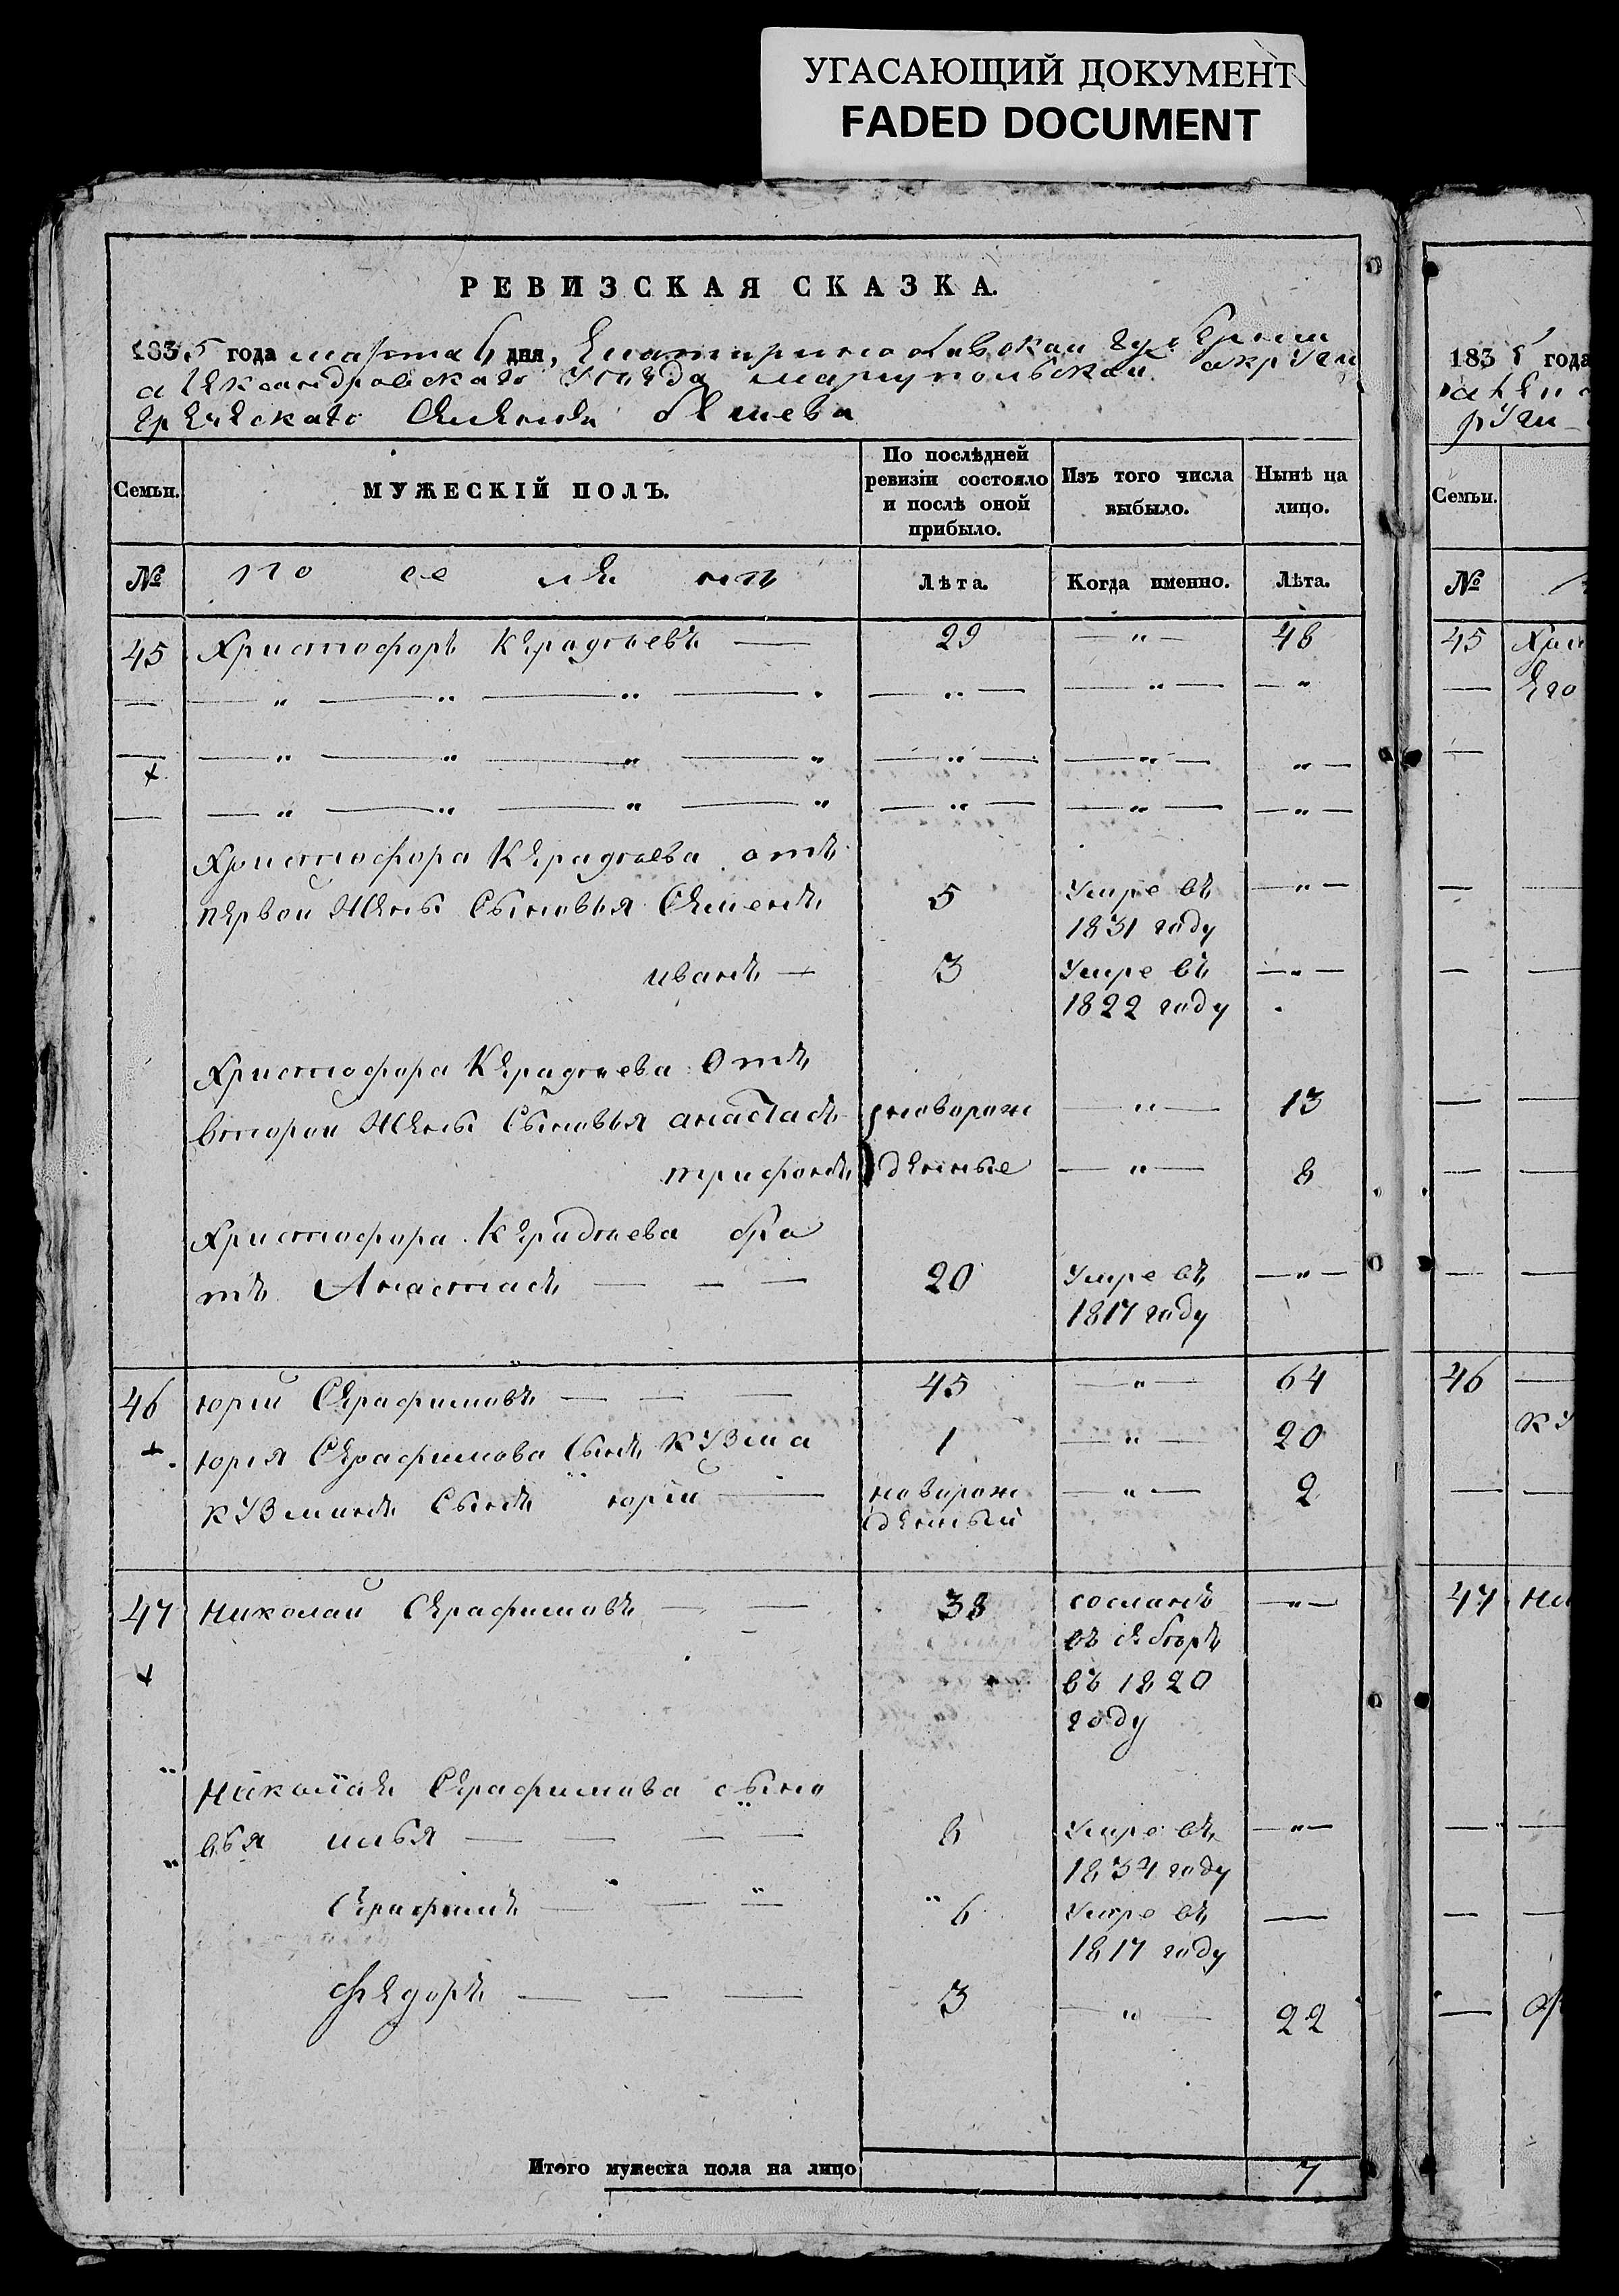 УГАСАЮЩИЙ ДОКУМЕНТ
FADED DOCUMENT
РЕВИЗСКАЯ СКАЗКА.
1835 года марта 6 дня, Екатеринославской губернии
александровскаго уезда мариупольскои округи
греческаго селения бешева
Семьи.
МУЖЕСКІЙ ПОЛЪ.
По послѣдней ревизіи состояло и послѣ оной прибыло.
Изъ того числа выбыло.
Нынѣ на лицо.
№ по се ля не Лѣта. Когда именно. Лѣта.
45 Христофоръ — 29 — „ — 48
Христофора отъ
первои жены сыновья Семенъ 5 Умре въ — „ —
1831 году
иванъ — 3 Умре въ — „ —
1822 году
Христофора Отъ
второи жены сыновья анастасъ новорож — „ — 13
трифонъ денные — „ — 8
Христофора бра
тъ Анастасъ — — — 20 Умре въ — „ —
1817 году
46 юрій Серафимовъ — — — 45 — „ — 64
юрія Серафимова сынъ кузма 1 — „ — 20
кузминъ сынъ юрій — новорож — „ — 2
денный
47 Николай Серафимовъ — — 38 сосланъ — „ —
въ
въ 1820
году
Николая Серафимова сыно
вья илья — — — — 8 Умре въ — „ —
1834 году
Серафимъ — — — 6 Умре въ —
1817 году
Федоръ — — — 3 — „ — 22
Итого мужеска пола на лицо 7
1835 года
Семьи.
№
45
Его
46
47